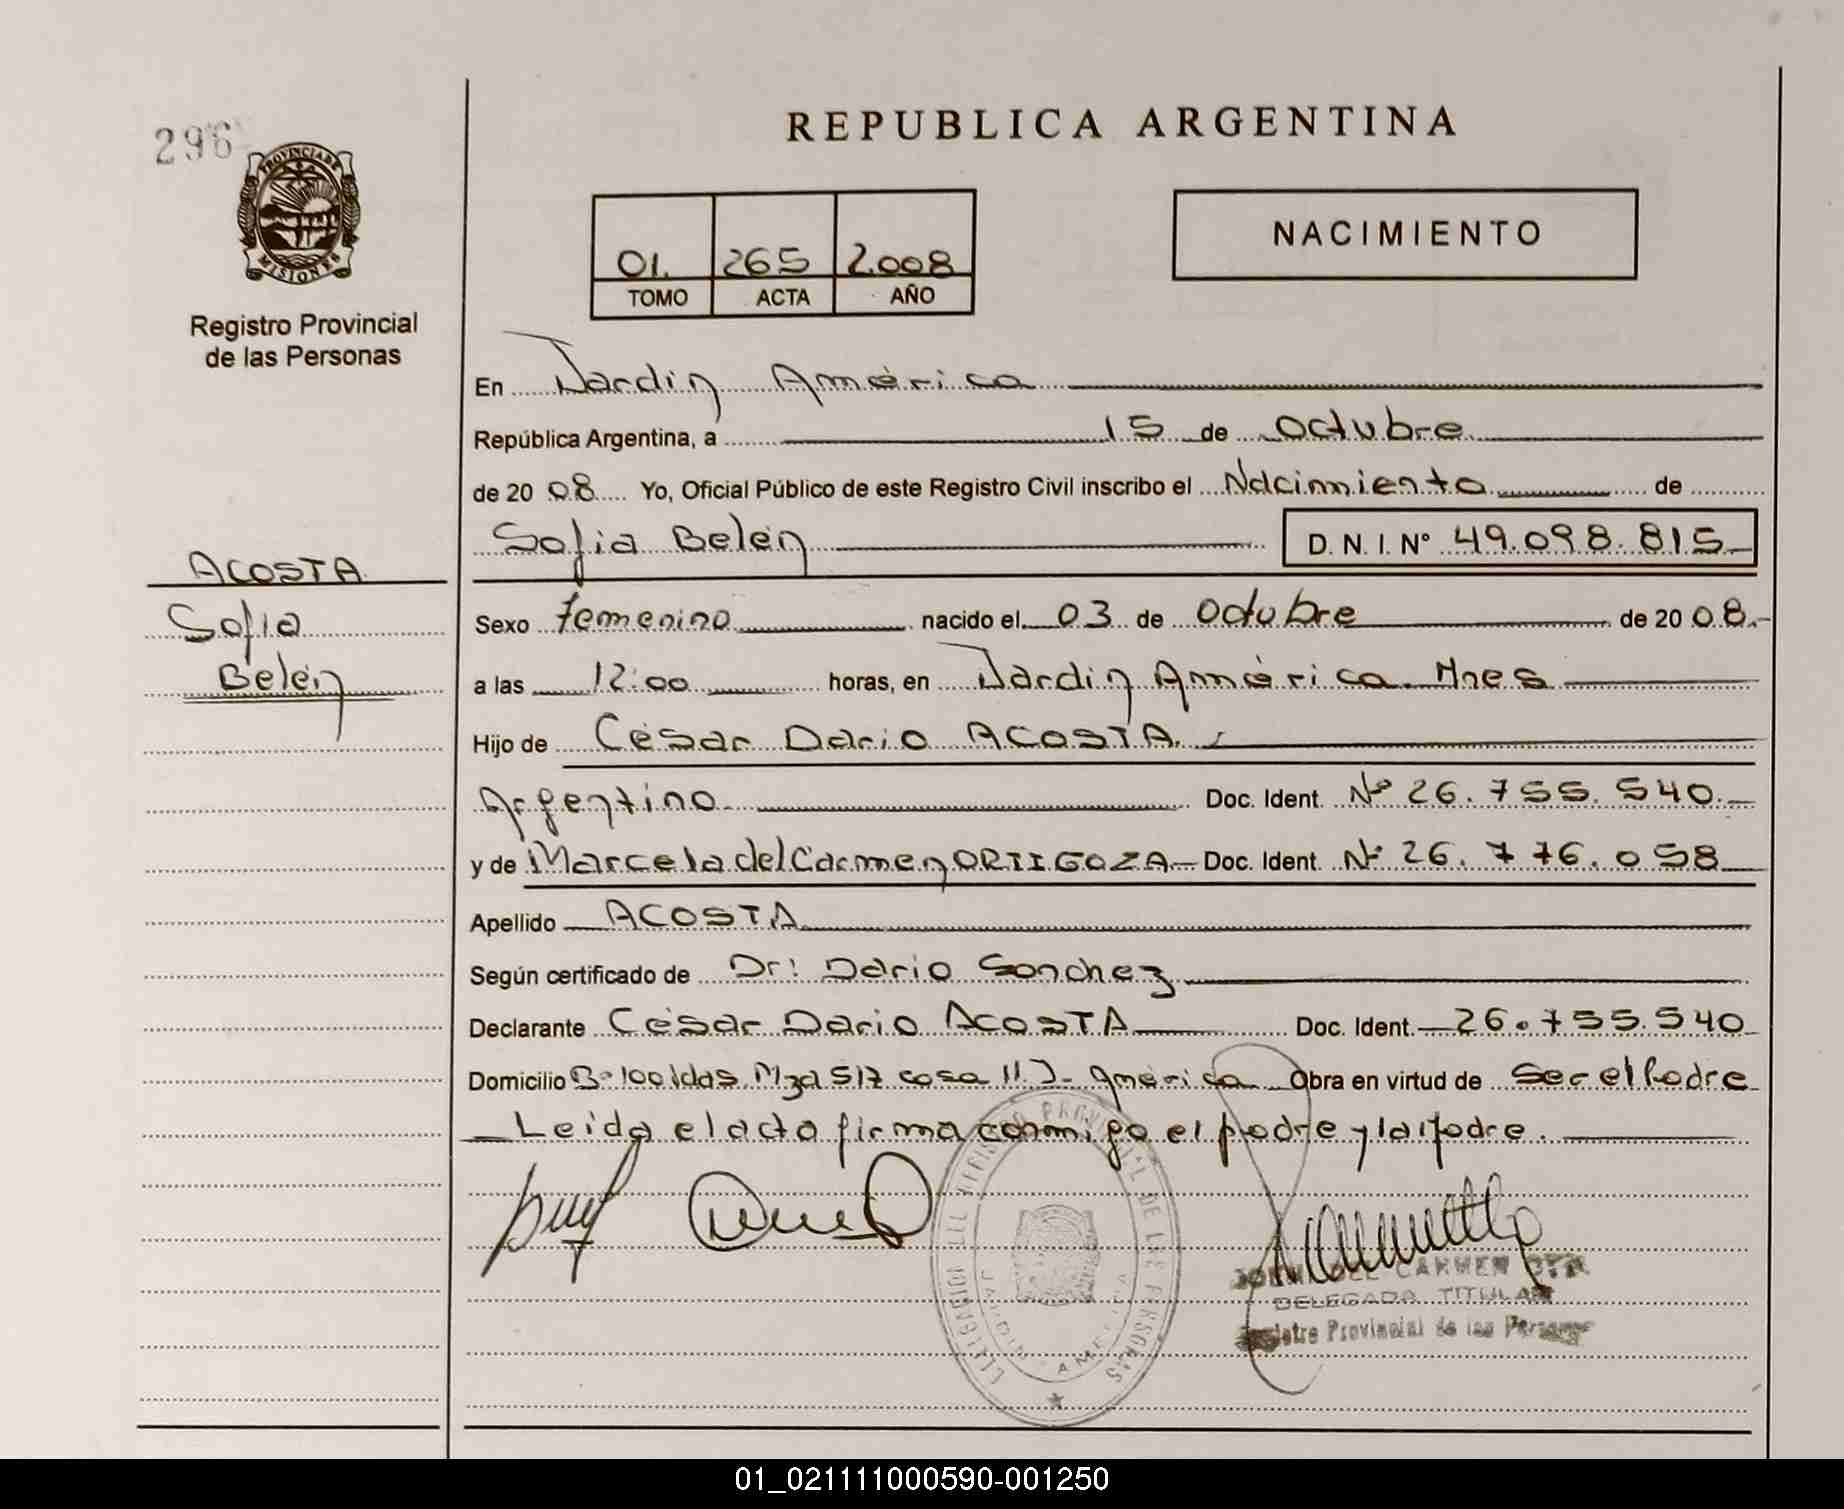 296
PROVINCIA DE
MISIONES
Registro Provincial
de las Personas
REPUBLICA ARGENTINA
01. 265 2.008
TOMO ACTA AÑO
NACIMIENTO
En Jardín América
República Argentina, a 15 de Octubre
de 20 08 Yo, Oficial Público de este Registro Civil inscribo el Nacimiento de
Sofia Belén D. N. I. Nº 49.098.815
ACOSTA
Sofia
Belén
Sexo femenino nacido el 03 de octubre de 20 08.-
a las 12:00 horas, en Jardín América. Mnes
Hijo de César Dario ACOSTA.
Argentino Doc. Ident. Nº 26.755.540.-
y de Marcela del Carmen ORTIGOZA- Doc. Ident. Nº 26.776.058
Apellido ACOSTA
Según certificado de Dr: Dario Sanchez
Declarante César Dario ACOSTA Doc. Ident. 26.755.540
Domicilio B- 100 Vdas Mza 517 casa 11 J- América Obra en virtud de Ser el Padre
Leida el acta firma conmigo el padre y la madre.
DELEGACION DEL REGISTRO PROVINCIAL DE LAS PERSONAS
JARDIN AMERICA
DEL CARMEN
DELEGADA TITULAR
Registro Provincial de las Personas
01_021111000590-001250